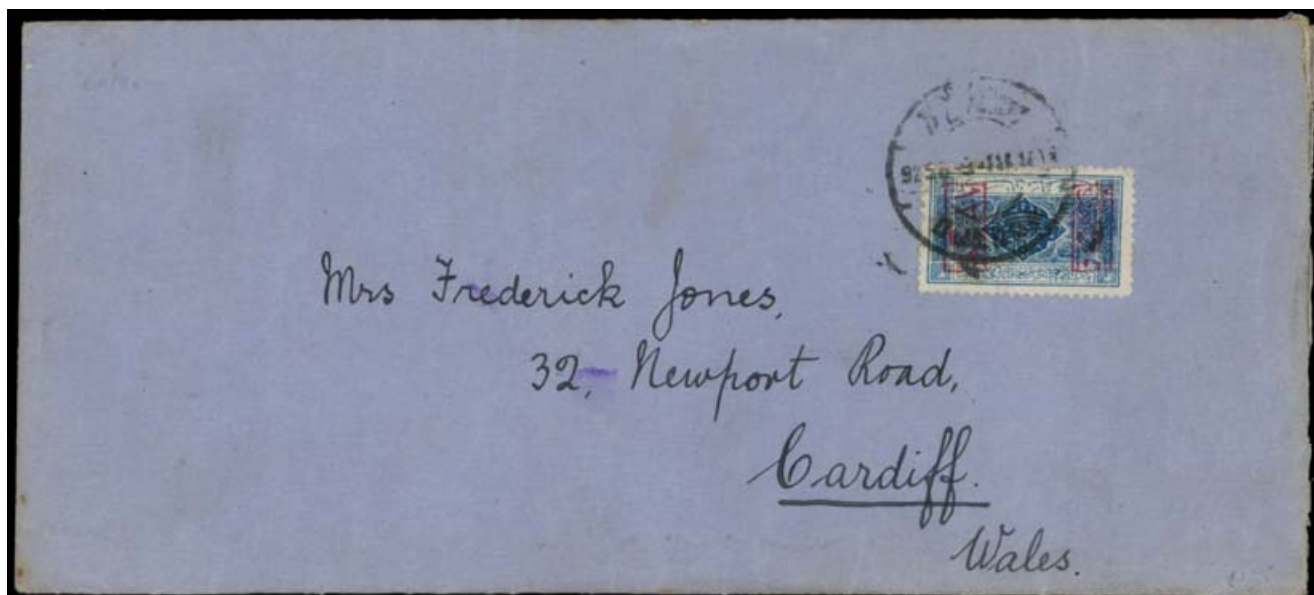 Mrs Frederick Jones,
32, Newport Road,
Cardiff.
Wales.